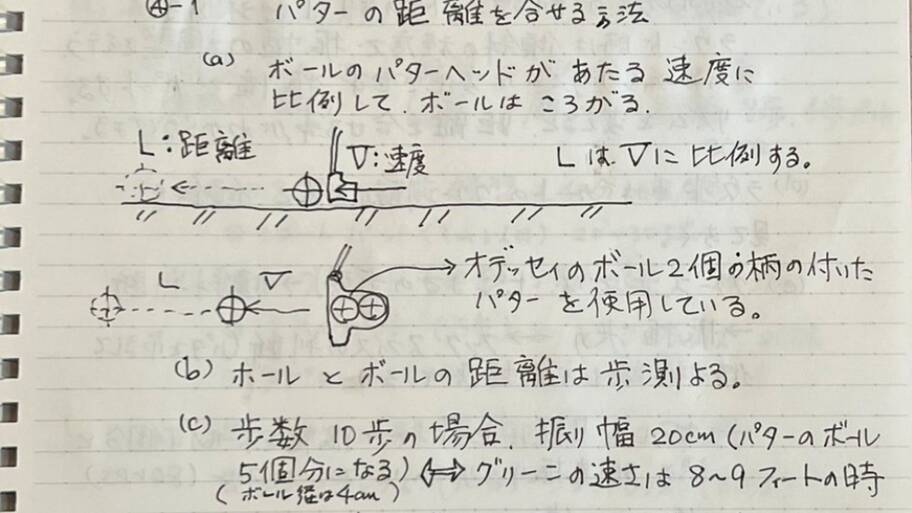 ④-1 パターの距離を合せる方法
(a) ボールのパターヘッドがあたる速度に
比例して、ボールはころがる。
L:距離 V:速度 LはVに比例する。
L V オデッセイのボール2個の柄の付いた
パターを使用している。
(b) ホールとボールの距離は歩測よる。
(c) 歩数10歩の場合、振り幅20cm(パターのボール
5個分になる) ⇔ グリーンの速さは8~9フィートの時
(ボール径は4cm)